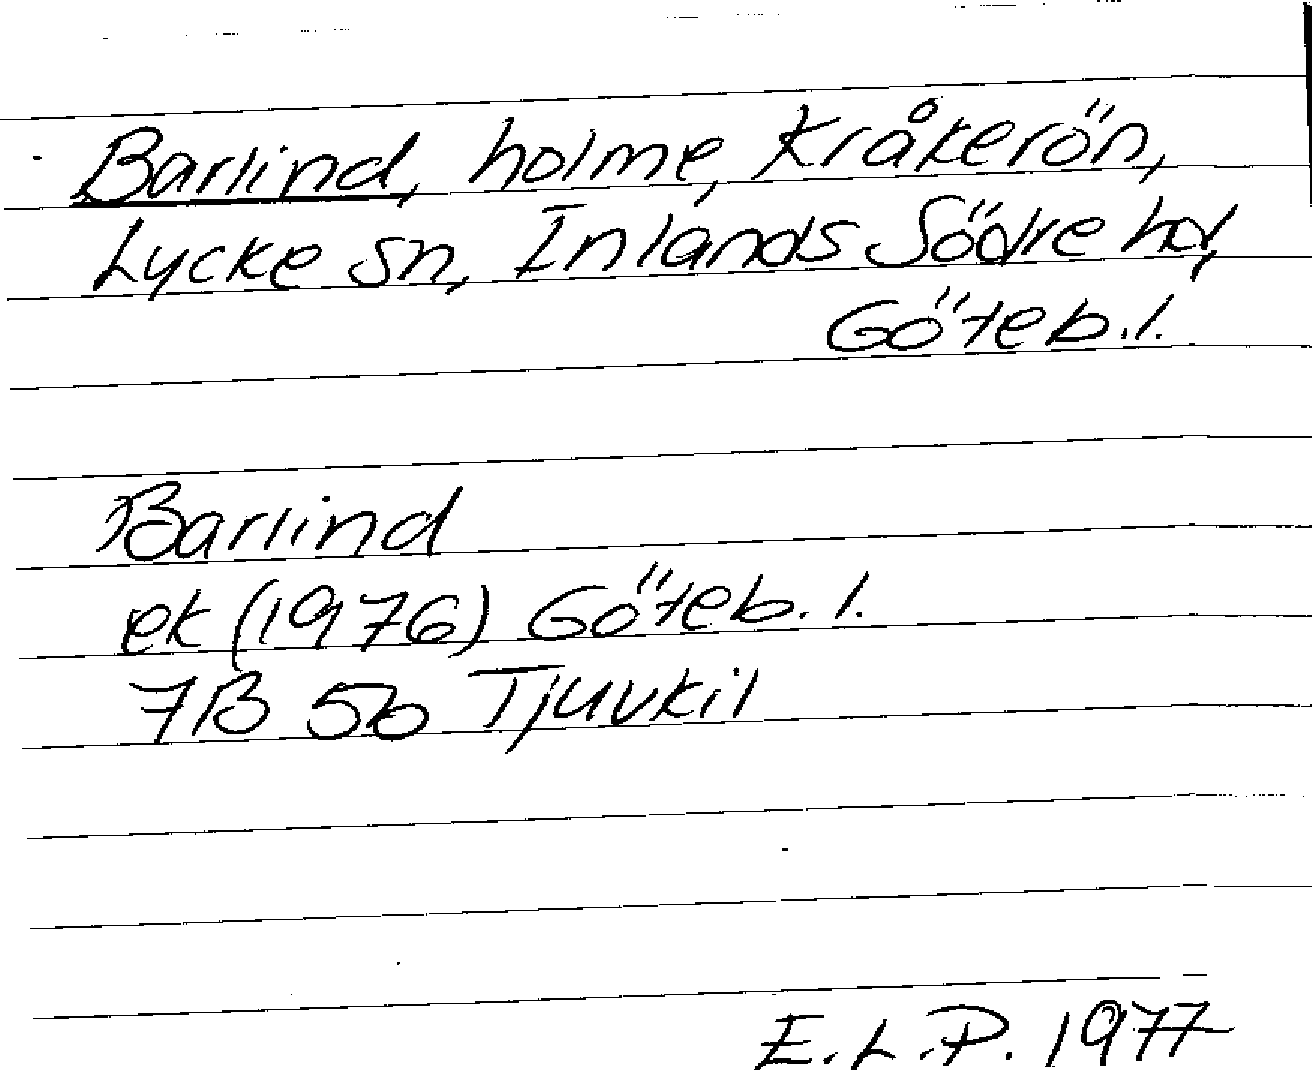 Barlind, holme, Kråkerön,
Lycke sn, Inlands Södre hd,
Göteb.l.
Barlind
ek (1976) Göteb.l.
7B 5b Tjuvkil
E.L.P. 1977